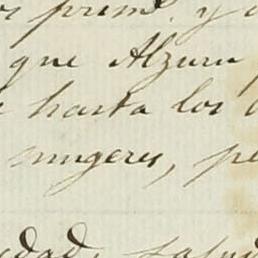 prim.^s y
que Alzuru
hasta los
mugeres, pe
edad, salud